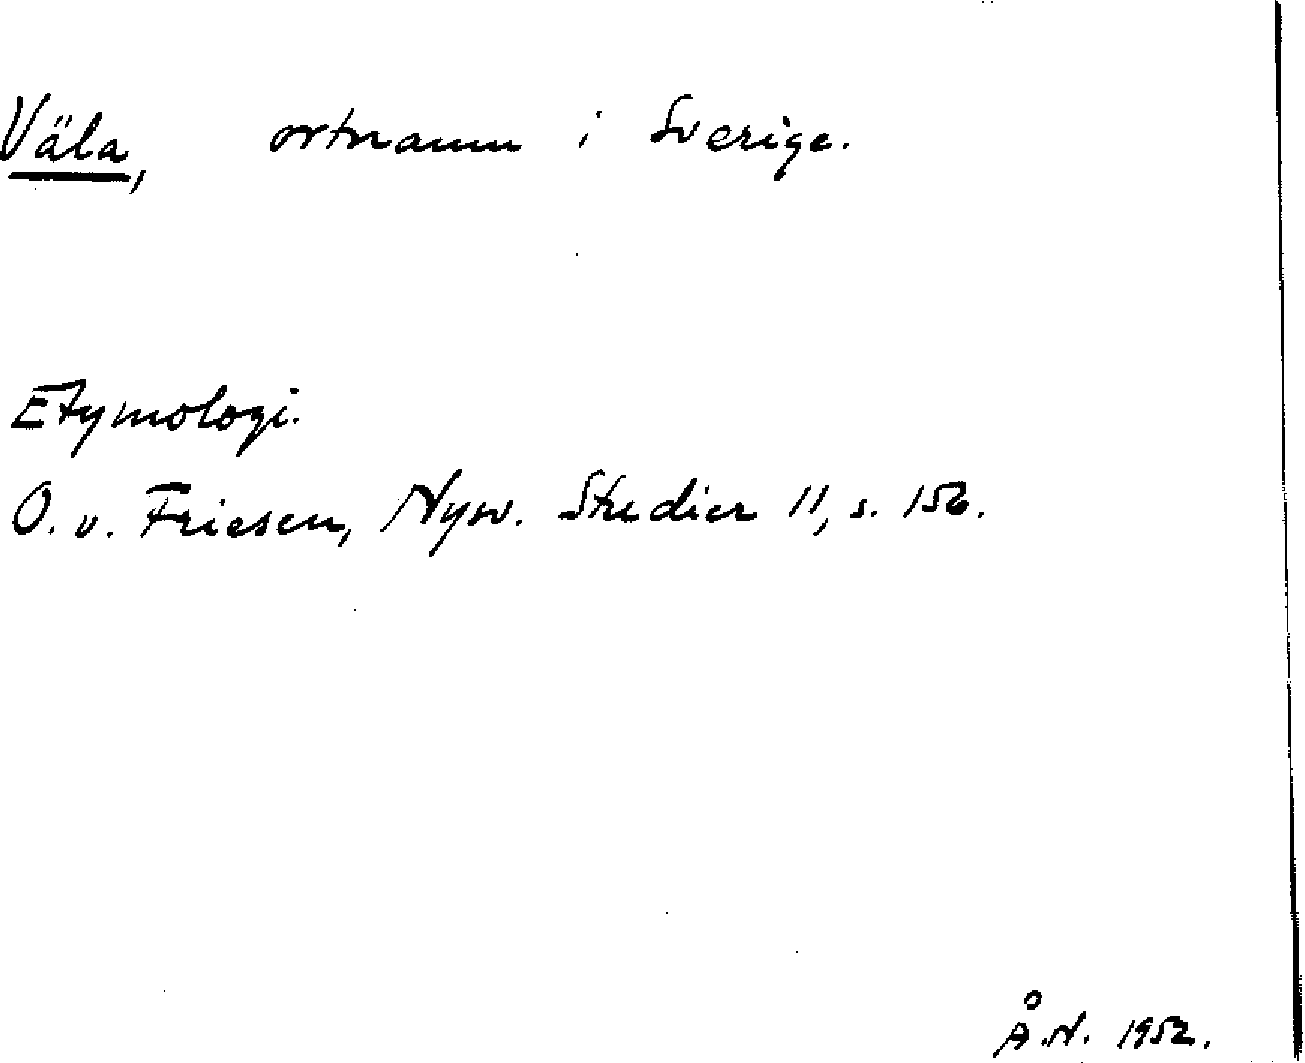 Väla, ortnamn i Sverige.
Etymologi.
O. v. Friesen, Nysv. Studier 11, s. 156.
Å.N. 1952.